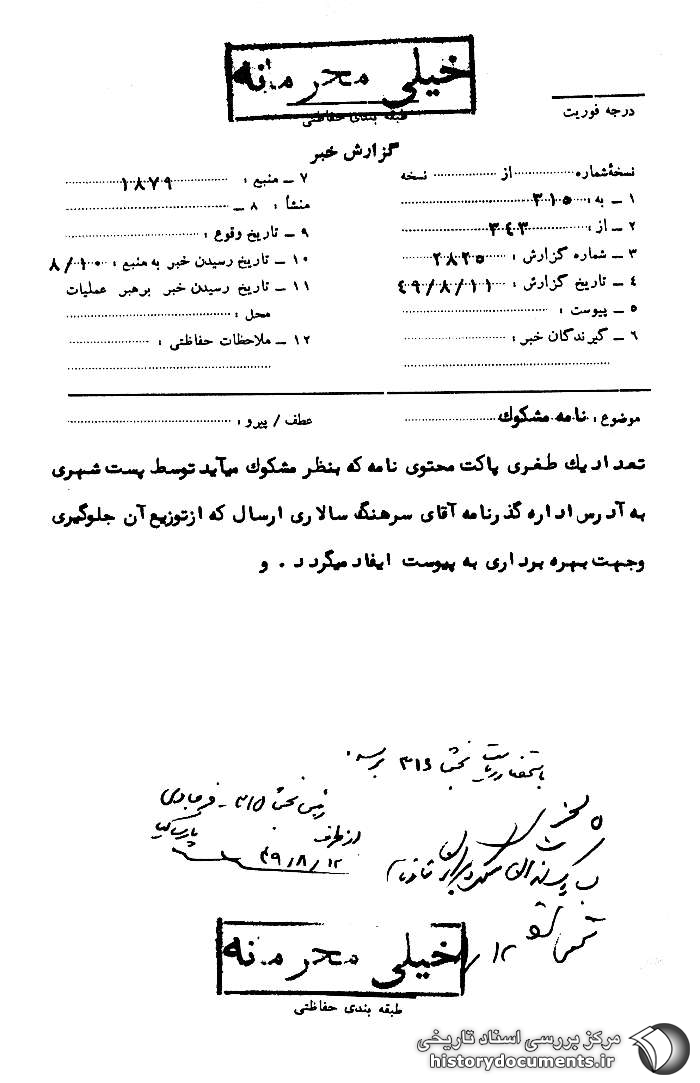 خیلی محرمانه
طبقه بندی حفاظتی
درجه فوریت
گزارش خبر
نسخهٔ شماره ............ از ............ نسخه
۱ ــ به : ۳۱۵
۲ ــ از : ۳۴۳
۳ ــ شماره گزارش : ۲۸۲۵
۴ ــ تاریخ گزارش : ۴۹/۸/۱۱
۵ ــ پیوست :
۶ ــ گیرندگان خبر :
۷ ــ منبع : ۱۸۷۹
۸ ــ منشأ :
۹ ــ تاریخ وقوع :
۱۰ ــ تاریخ رسیدن خبر به منبع : ۸/۱۰
۱۱ ــ تاریخ رسیدن خبر برهبر عملیات
محل :
۱۲ ــ ملاحظات حفاظتی :
موضوع : نامه مشکوک
عطف / پیرو :
تعداد یک طغری پاکت محتوی نامه که بنظر مشکوک میآید توسط پست شهری
به آدرس اداره گذرنامه آقای سرهنگ سالاری ارسال که ازتوزیع آن جلوگیری
وجهت بهره برداری به پیوست ایفاد میگردد . و
باستحضار ریاست بخش ۳۱۵ برسد .
رئیس بخش ۳۱۵ ــ فرجادی
از طرف پارساکیا
۴۹/۸/۱۲
خیلی محرمانه
طبقه بندی حفاظتی
مرکز بررسی اسناد تاریخی
historydocuments.ir